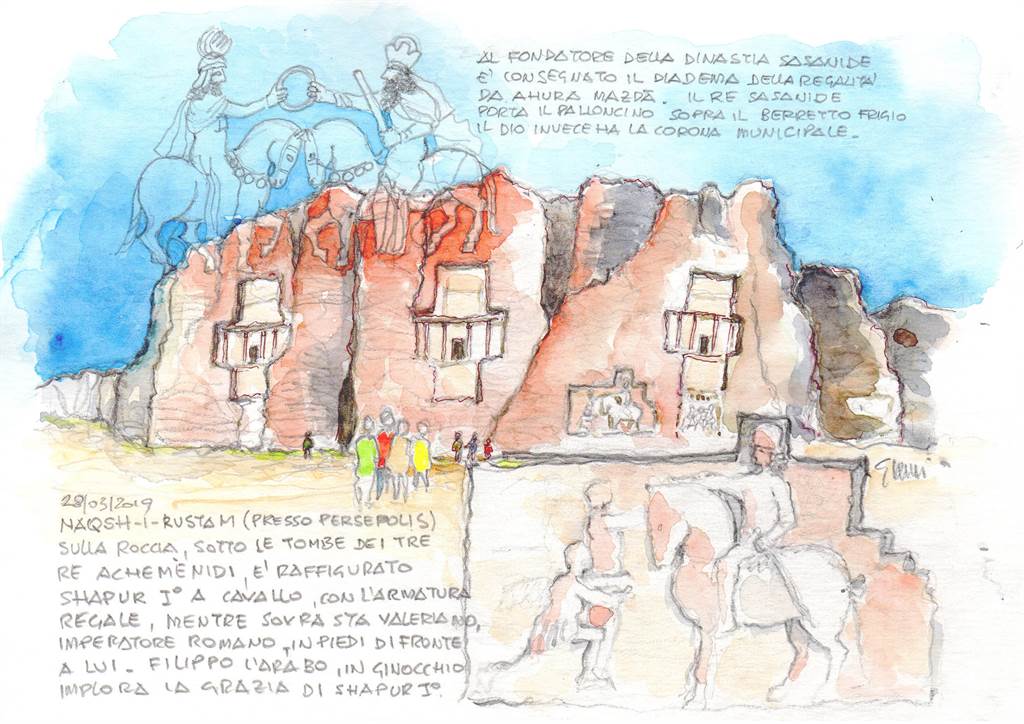 AL FONDATORE DELLA DINASTIA SASANIDE
E' CONSEGNATO IL DIADEMA DELLA REGALITA'
DA AHURA MAZDĀ. IL RE SASANIDE
PORTA IL PALLONCINO SOPRA IL BERRETTO FRIGIO
IL DIO INVECE HA LA CORONA MUNICIPALE.
28/03/2019
NAQSH-I-RUSTAM (PRESSO PERSEPOLIS)
SULLA ROCCIA, SOTTO LE TOMBE DEI TRE
RE ACHEMENIDI, E' RAFFIGURATO
SHAPUR I° A CAVALLO, CON L'ARMATURA
REGALE, MENTRE SOVRASTA VALERIANO,
IMPERATORE ROMANO, IN PIEDI DI FRONTE
A LUI. FILIPPO L'ARABO, IN GINOCCHIO
IMPLORA LA GRAZIA DI SHAPUR I°.